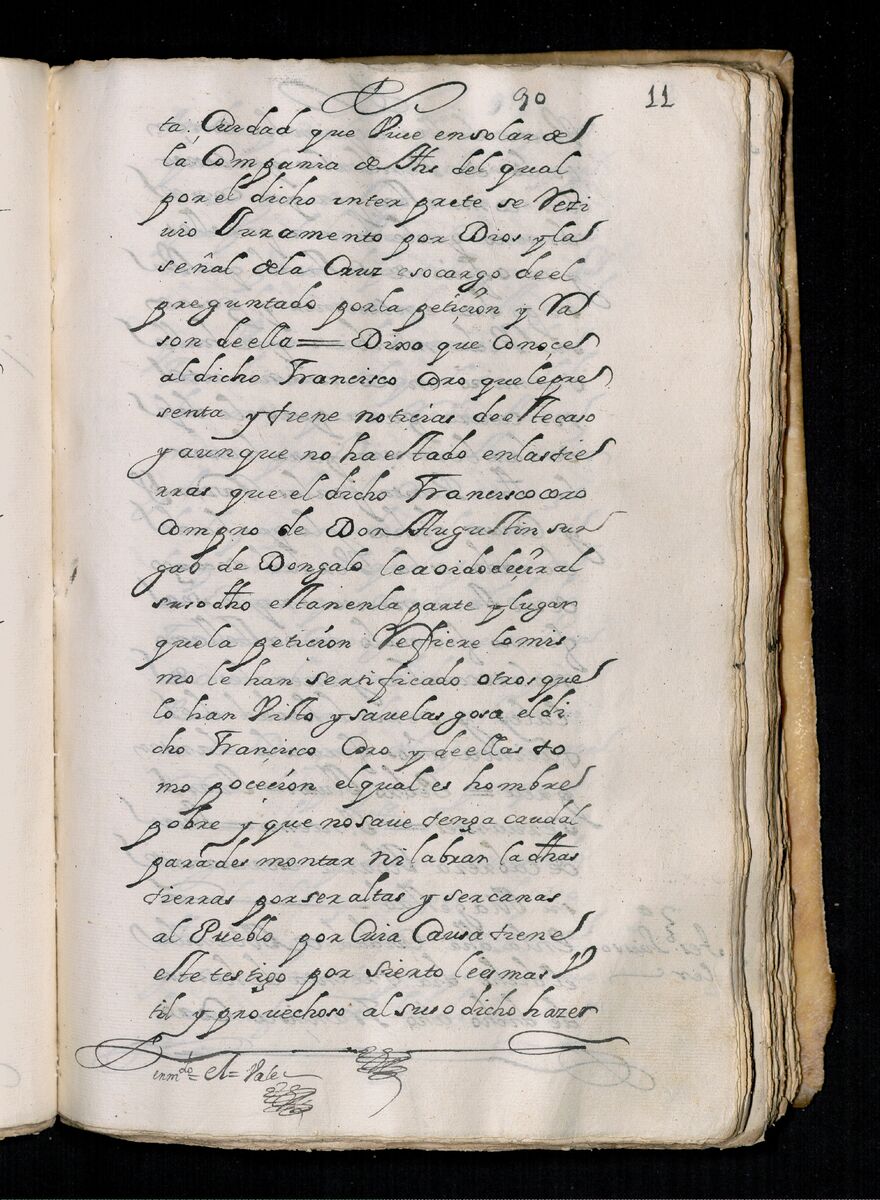 90 11
ta Ciudad que Vive en solar de
la Compania de Jhs del qual
por el dicho interprete se Rezi
uio Juramento por Dios y la
señal de la Cruz eso cargo de el
preguntado por la petición y Ra
son de ella = Dixo que Conoce
al dicho Francisco Coro que le pre
senta y tiene noticias de este caso
y aunque no ha estado en las tie
rras que el dicho Francisco coro
Compro de Don Augustin sun
gao de Dongalo le a oido decir al
suso dho estan en la parte y lugar
que la petición Refiere lo mis
mo le han sertificado otros que
lo han Visto y saue las gosa el di
cho Francisco Coro y de ellas to
mo poceción el qual es hombre
pobre y que no saue tenga caudal
para desmontar ni labrar la dhas
tierras por ser altas y sercanas
al Pueblo por Cuia Causa tiene
este testigo por sierto le es mas V
til y prouechoso al suso dicho hazer
enmdo = el = Vale